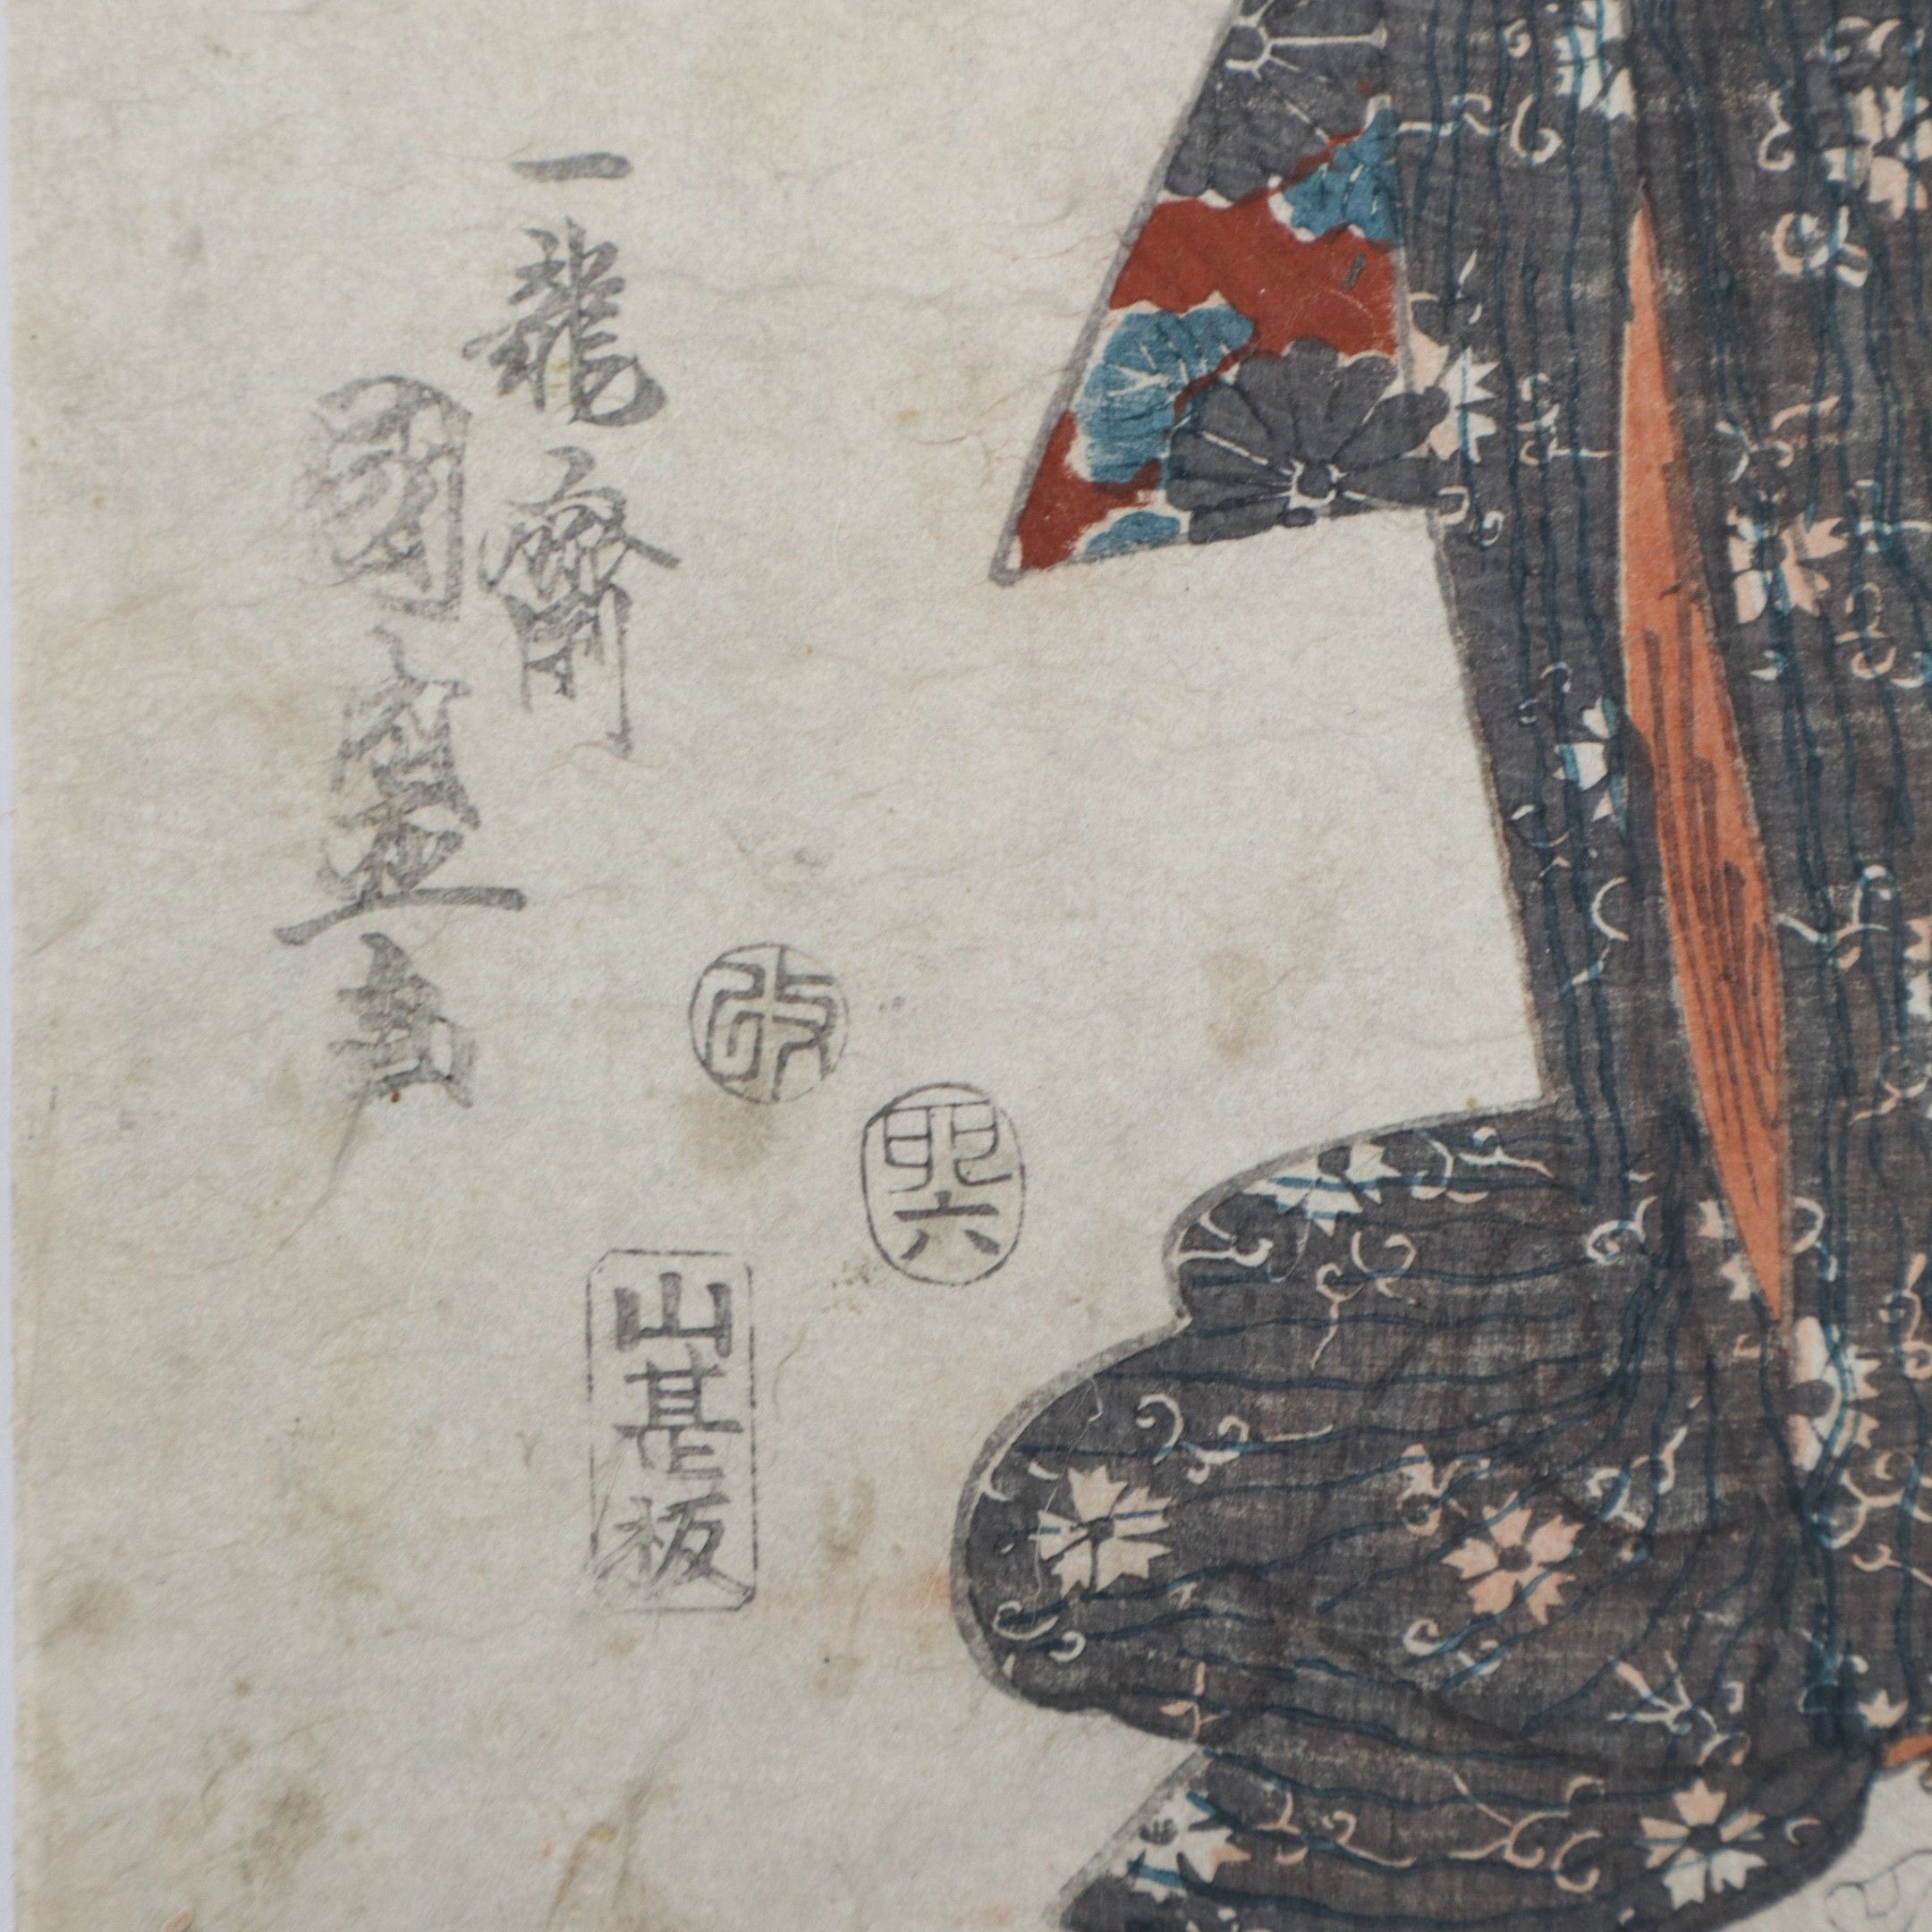 一龍齋
國盛画
改
卯六
山甚板